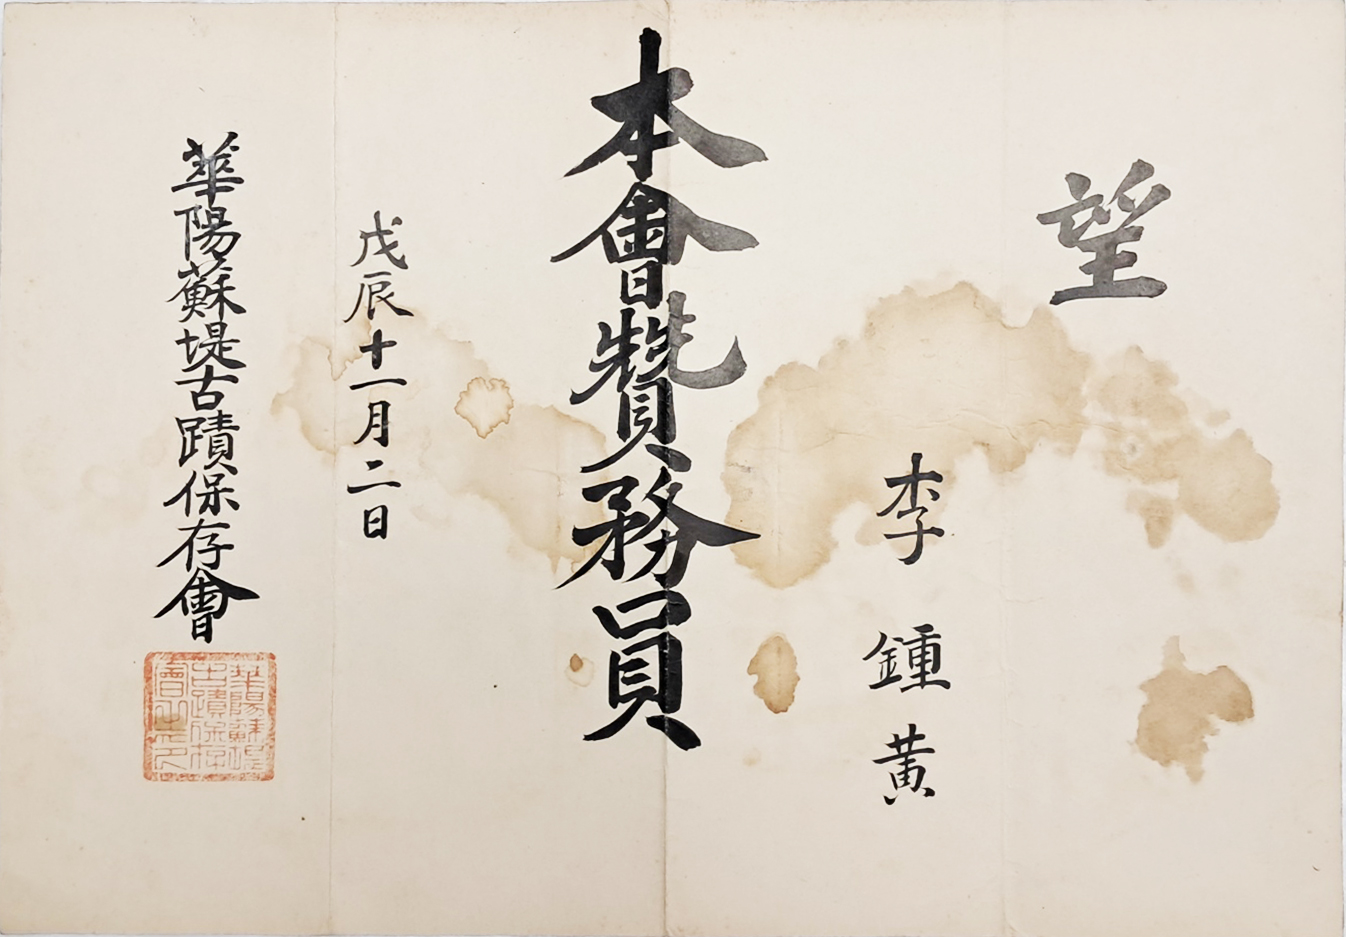 望
李鍾黃
本會贊務員
戊辰十一月二日
華陽蘇堤古蹟保存會
華陽蘇堤
古蹟保存
會之印